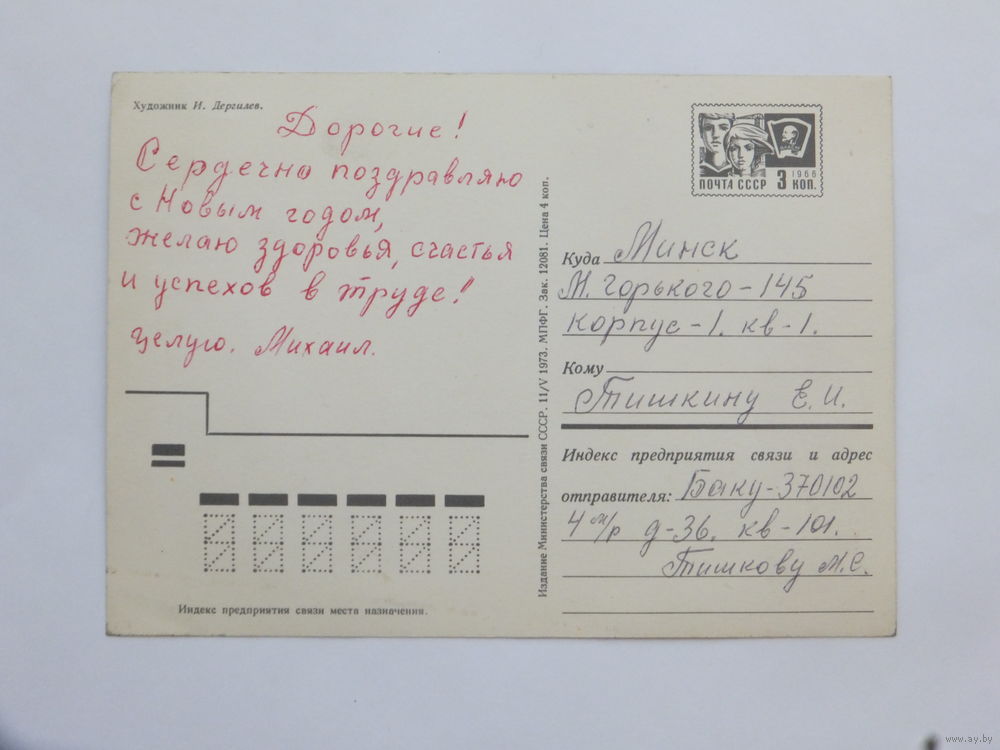 Художник И. Дергилев.
Дорогие!
Сердечно поздравляю
с Новым годом,
желаю здоровья, счастья
и успехов в труде!!
Целую. Михаил.
Индекс предприятия связи места назначения.
Издание Министерства связи СССР. 11/V 1973. МПФГ. Зак. 12081. Цена 4 коп.
1966
ПОЧТА СССР 3 КОП.
Куда Минск
М. Горького-145
корпус-1. кв-1.
Кому
Тишкину Е.И.
Индекс предприятия связи и адрес
отправителя: Баку-370102
4 м/р д-36. кв-101.
Тишкову М.С.
www.ay.by